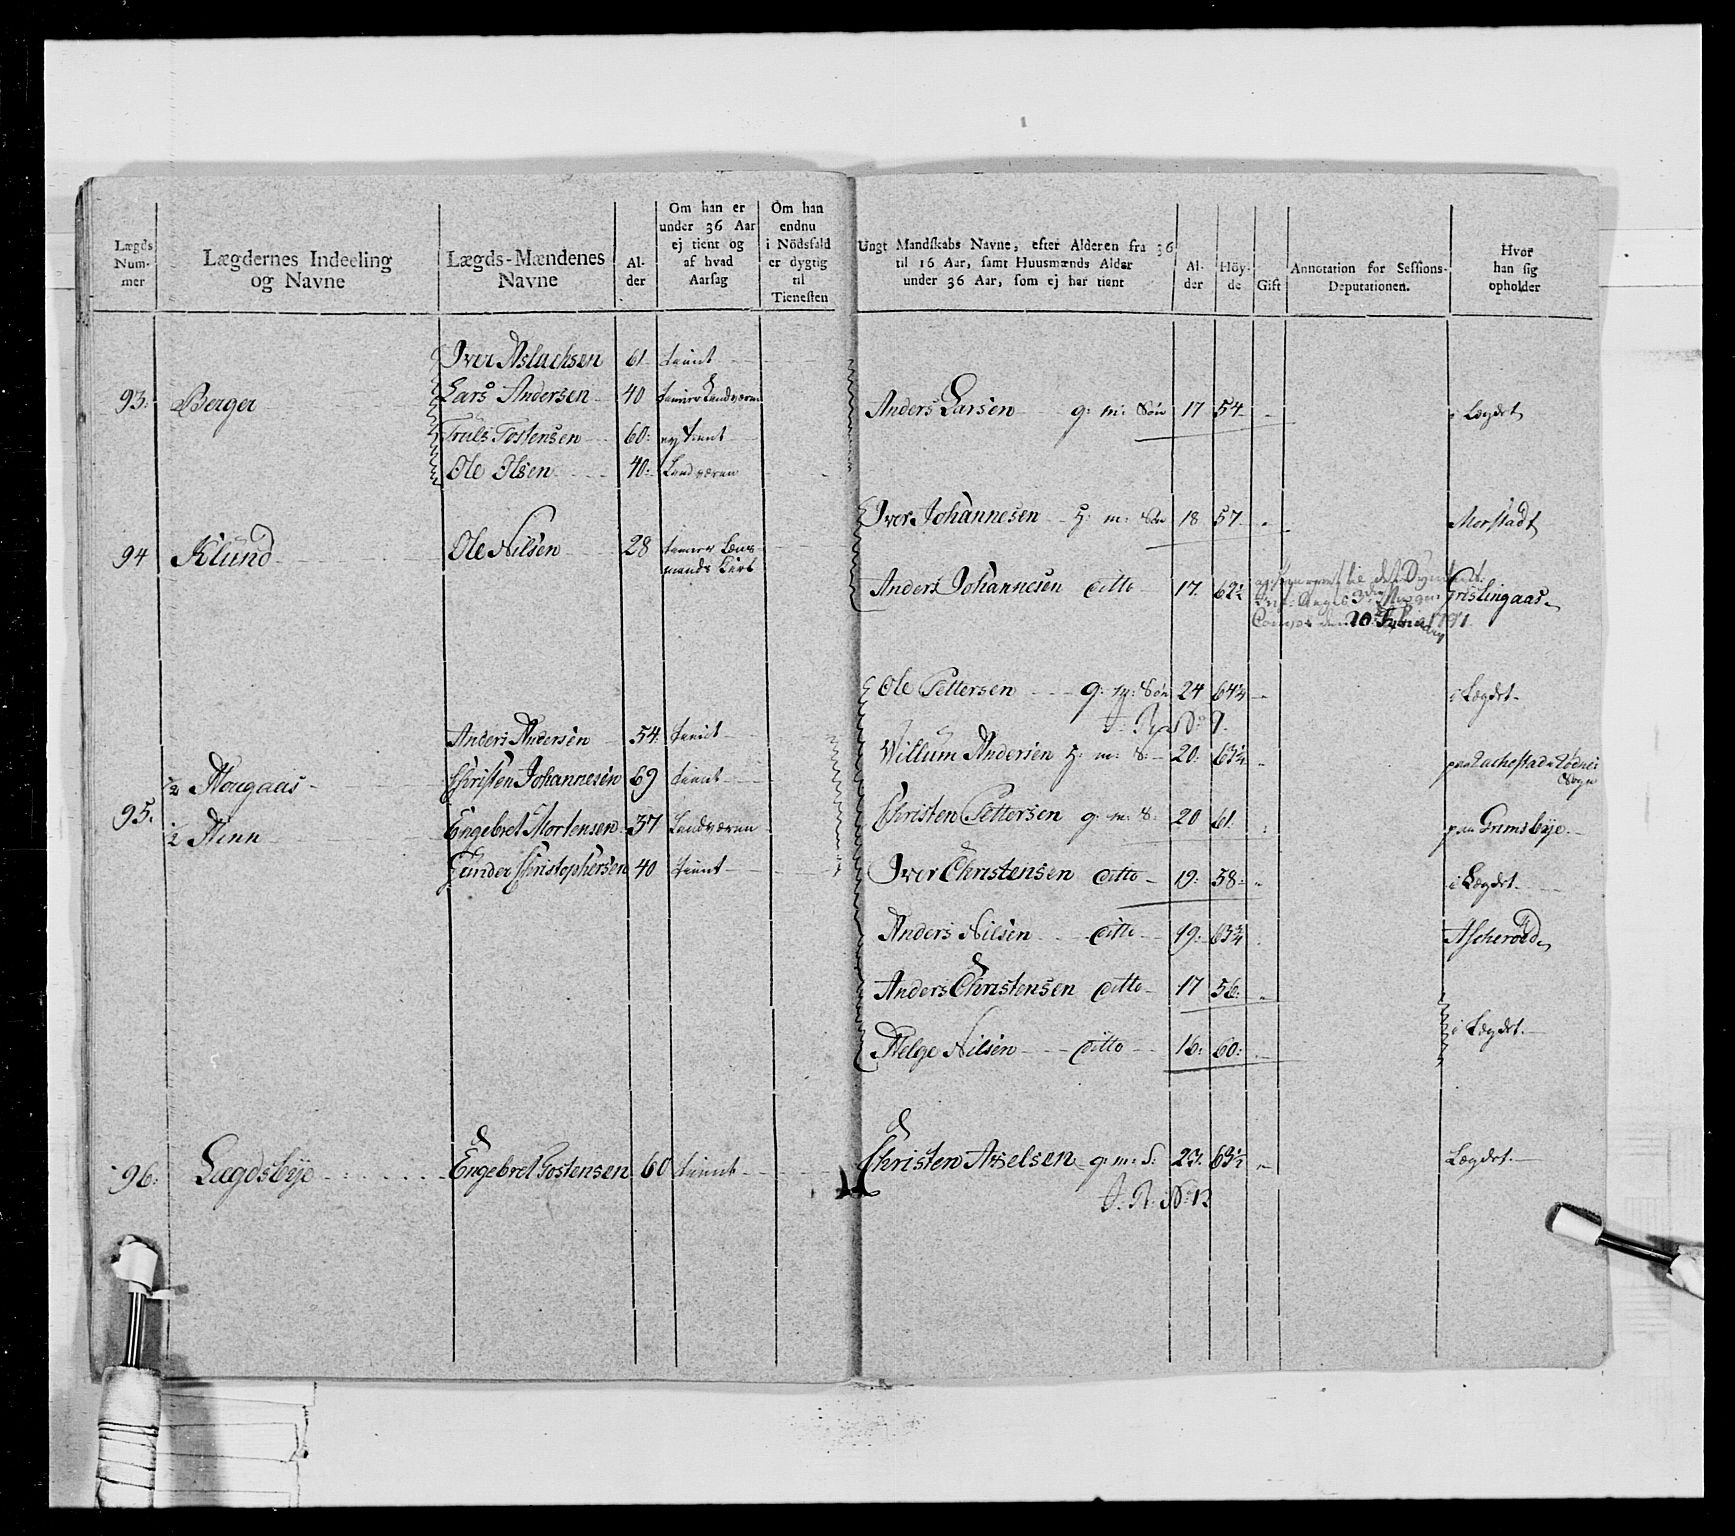 Lægds Num- mer
Lægdernes Indeeling og Navne
Lægds-Mændenes Navne
Al- der
Om han er under 36 Aar ej tient og af hvad Aarsag
Om han endnu i Nödsfald er dygtig til Tienesten
Ungt Mandskabs Navne, efter Alderen fra 36 til 16 Aar, samt Huusmænds Alder under 36 Aar, som ej har tient
Al- der
Höy- de
Gift
Annotation for Sessions- Deputationen.
Hvor han sig opholder
Iver Aslachsen 61. tient
93. Berger Lars Andersen 40 tiener Landværn
Truls Tostensen 60: ey tient
Ole Olsen 40: Landværen
Anders Larsen g: m: Søn 17 54 i Lægdet
Iver Johannesen h: m: Søn 18 57 Morstad
94 Klund Ole Nilsen 28 tiener Lens-
mands
Anders Johannesen ditto 17. 62½ Gristingaas
20 1791
Ole Pettersen g: m: Søn 24 64¼ i Lægdet
Anders Andersen 54 tient
Willum Andersen h: m: S: 20: 63¼ paa
Sogn
½ Hougaas Christen Johannesen 69 tient
95.
½ Henn Engebret Mortensen 37 Landværen
Gunder Christophersen 40 tient
Christen Pettersen g: m: S: 20 61. paa Grimsbye
Iver Christensen ditto 19: 58: i Lægdet
Anders Nilsen ditto 19: 63¾ Ascheröed
Anders Christensen ditto 17 56:
Helge Nilsen ditto 16: 60: i Lægdet
96: Lægdsbye Engebret Tostensen 60 tient
Christen Axelsen g: m: S: 23. 63½ Lægdet
J. R: No 12